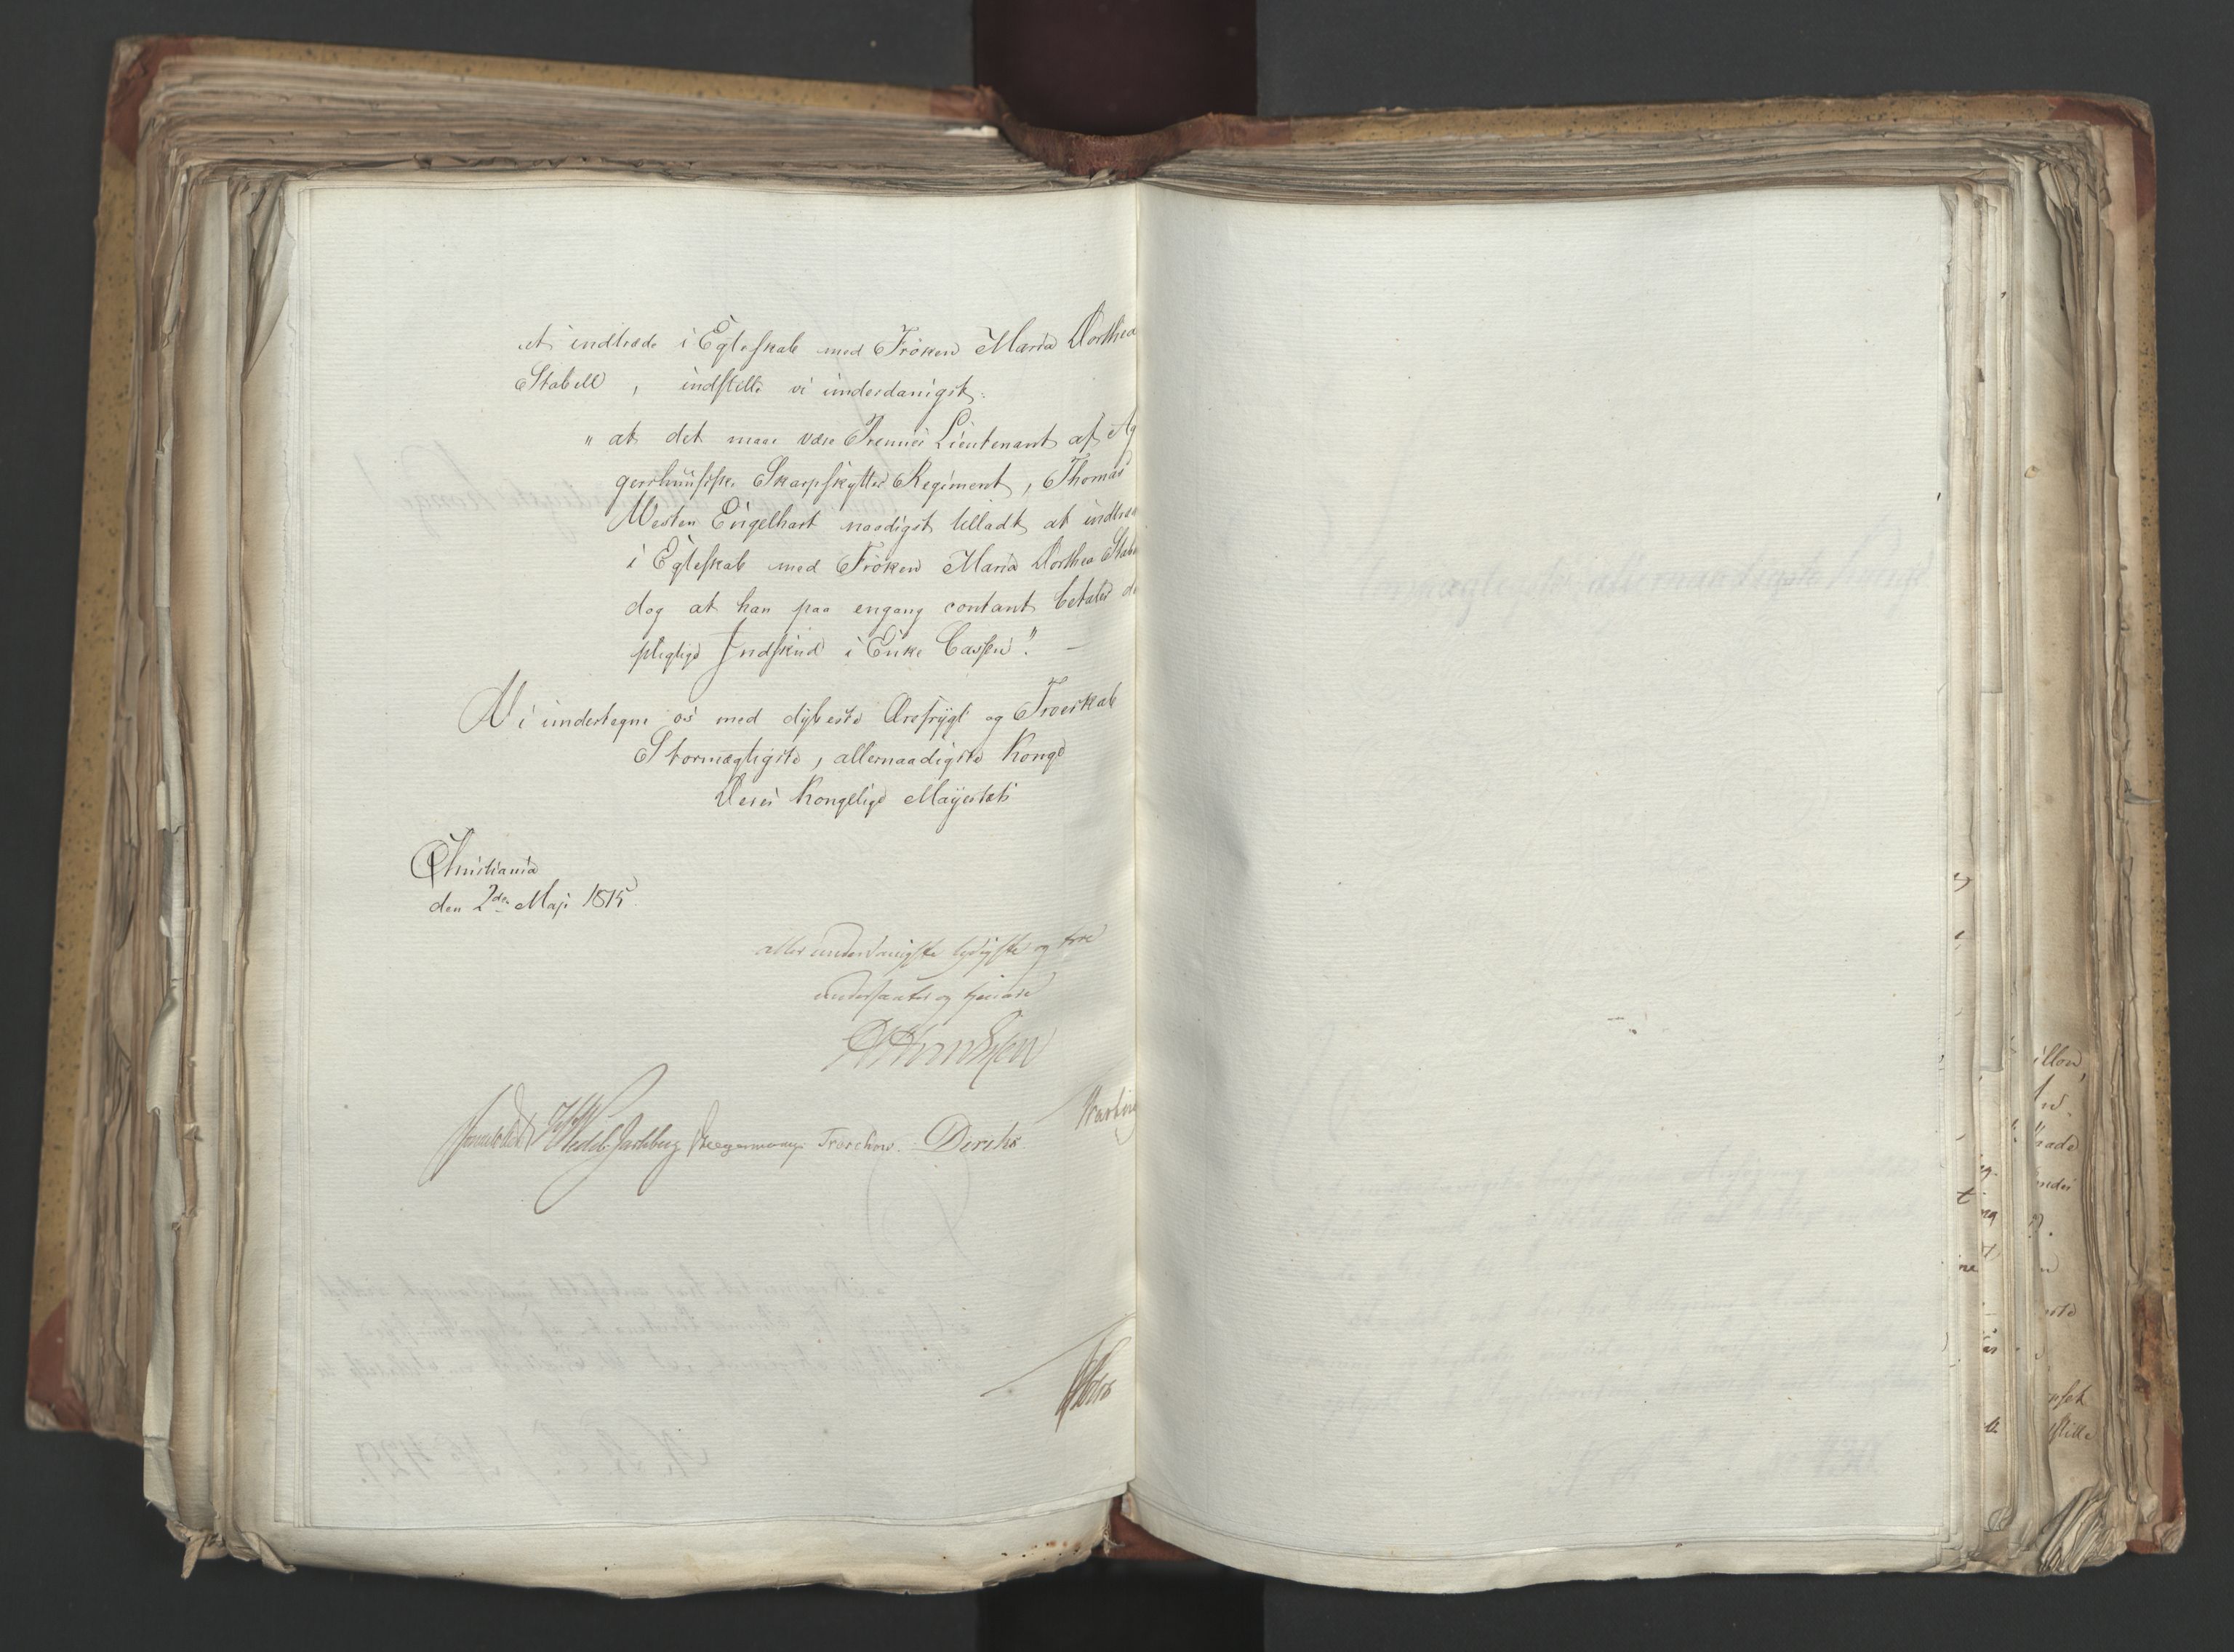 at indtræde i Egteskab med Frøken Maria Dorthea
Stabell, indstille vi underdanigst:
"at det maae være Premier Lieutenant af Ag
gershuusiske Skarpskytter Regiment, Thomas
Westen Engelhart naadigst tilladt at indtræ
i Egteskab med Frøken Maria Dorthea Stabe
dog at han paa engang contant betaler de
pligtige Indskud i Enke Cassen". —
Vi undertegne os med dybeste Ærefrygt og Troeskab
Stormægtigste, allernaadigste Konge
Deres Kongelige Mayestæts
Christiania
den 2den Maji 1815.
allerunderdanigste lydigste og troe
undersaatter og tjenere
Sommerhielm Wedel Jarlsberg Hegermann Treschow. Diriks